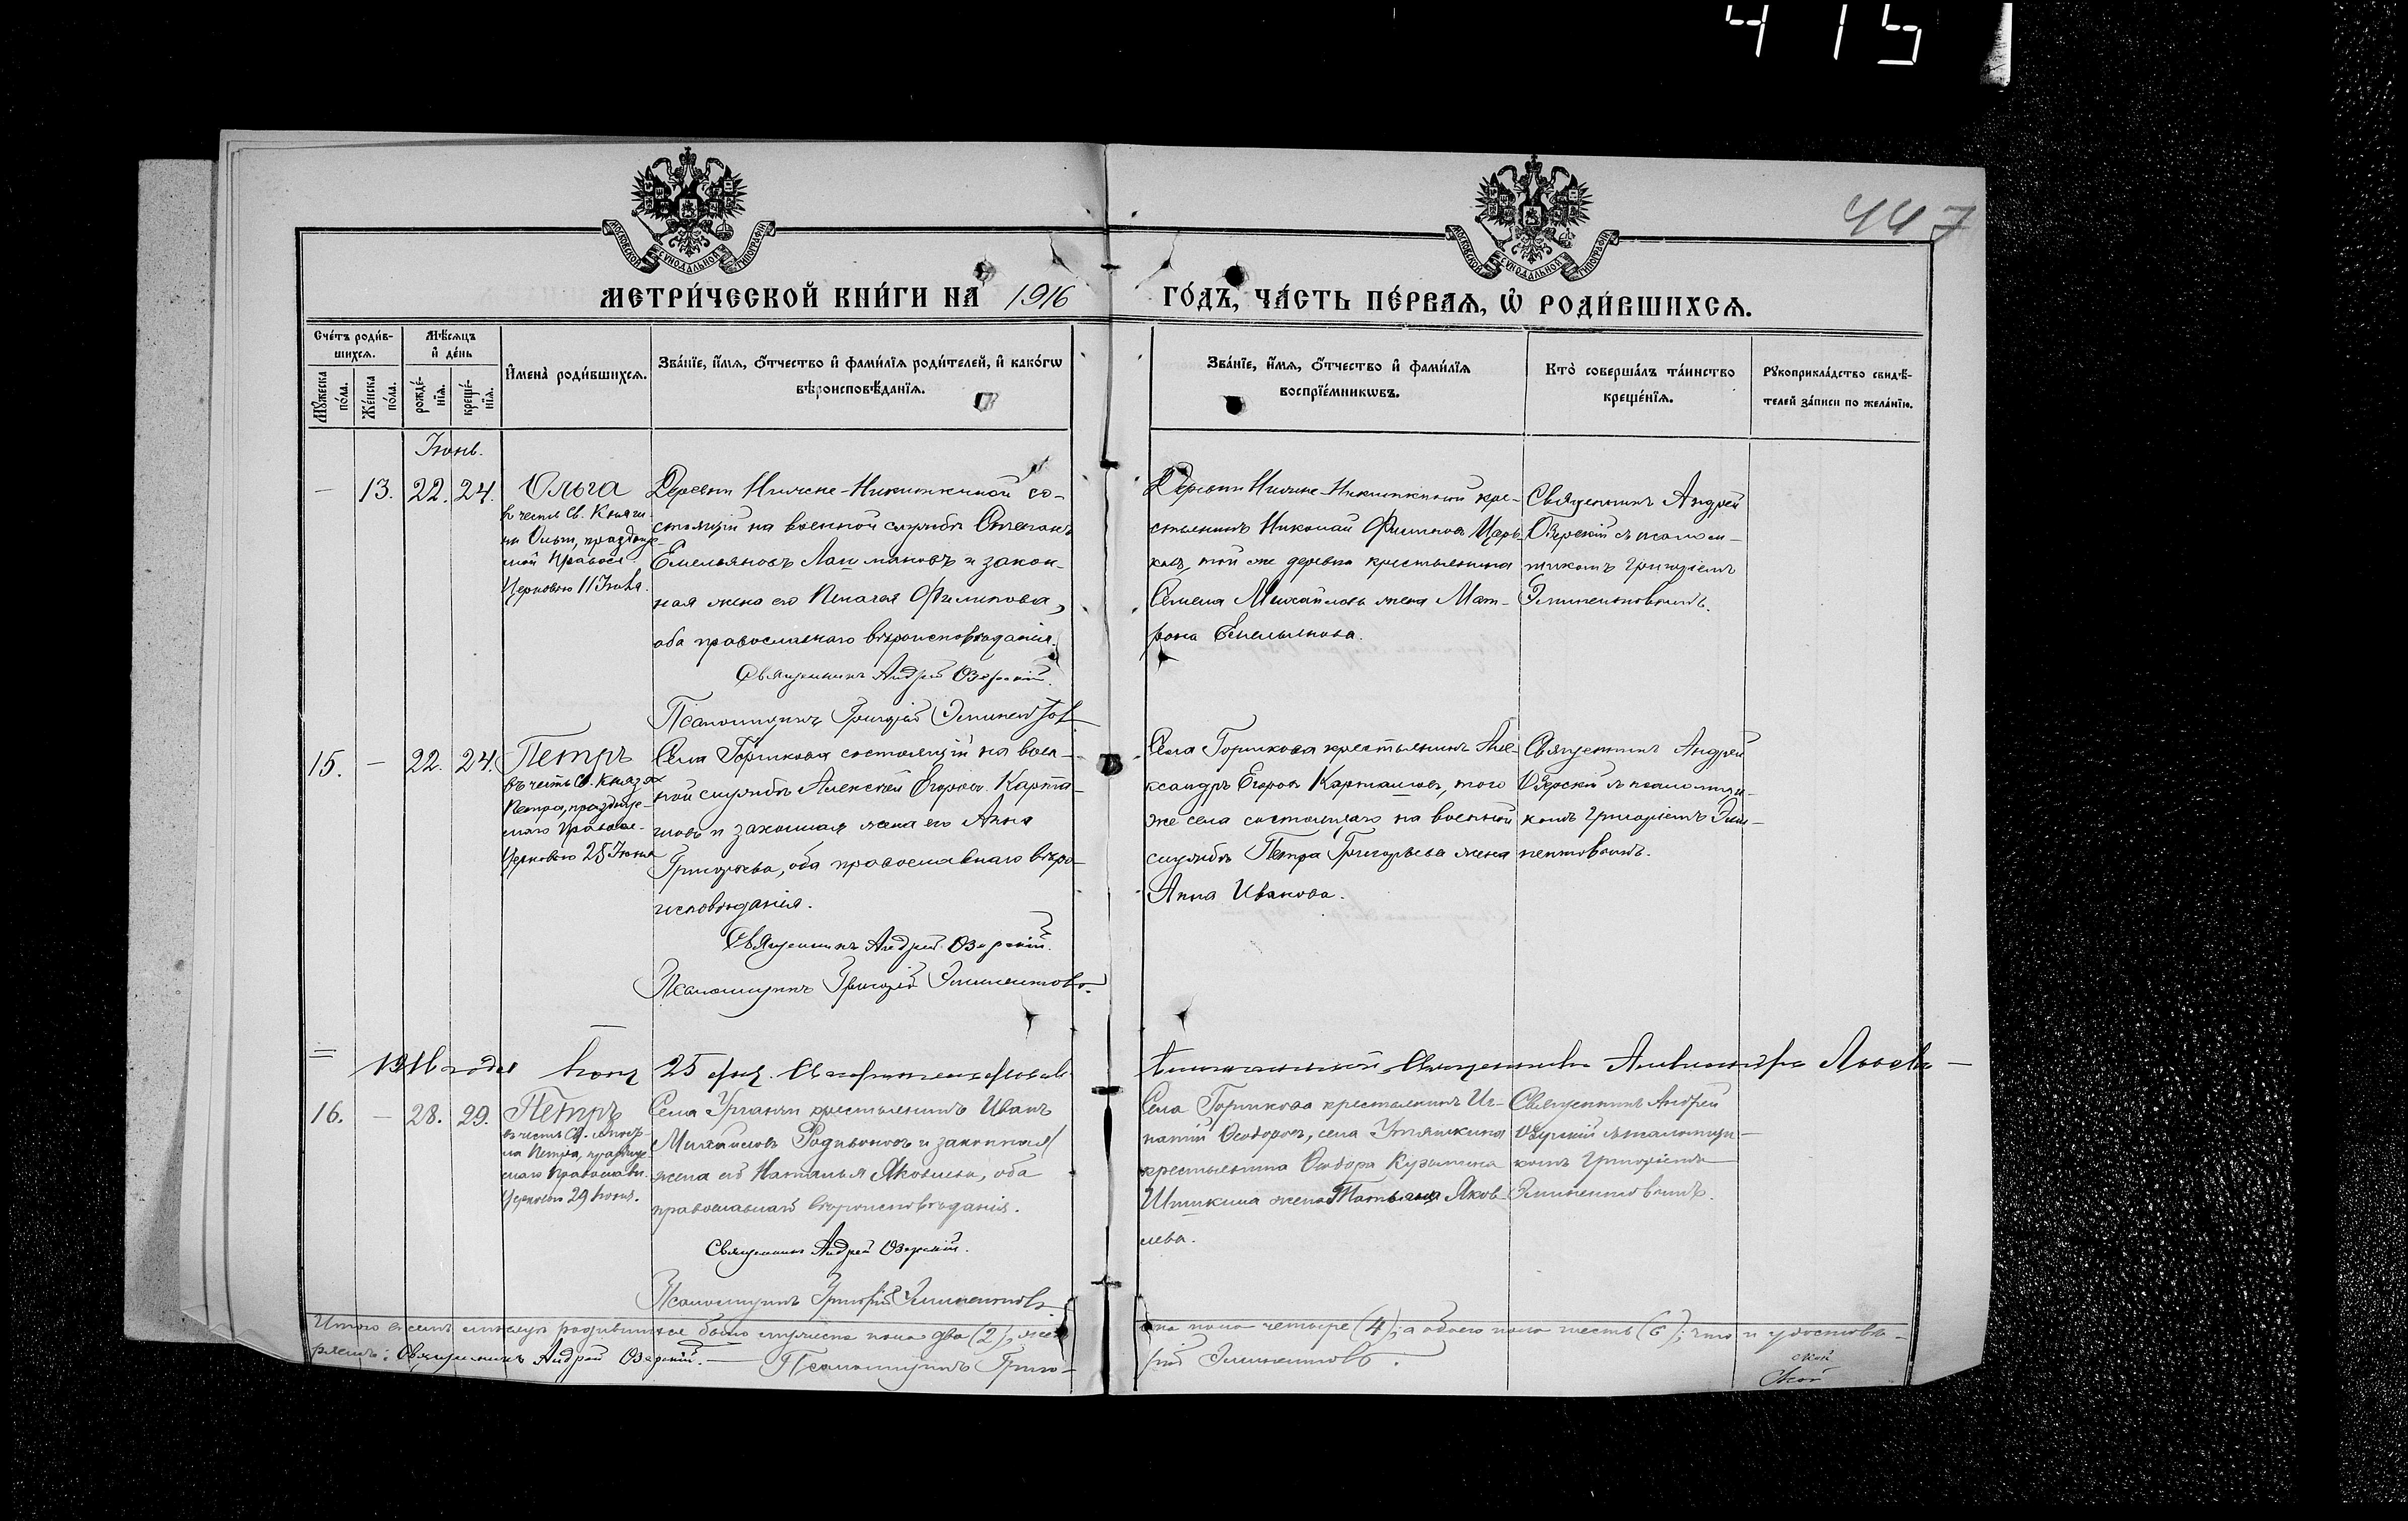 415
447
МОСКОВСКОЙ СѴНОДАЛЬНОЙ ТИПОГРАФІИ
МОСКОВСКОЙ СѴНОДАЛЬНОЙ ТИПОГРАФІИ
МЕТРИ́ЧЕСКОЙ КНИ́ГИ НА 1916 ГО́ДЪ, ЧА́СТЬ ПЕ́РВАЯ, Ѡ РОДИ́ВШИХСЯ.
Сче́тъ роди́в-
шихся.
Му́жеска по́ла.
Же́нска по́ла.
Мѣ́сяцъ
и҆ де́нь
рожде́-
нїя.
креще́-
нїя.
И҆мена̀ роди́вшихся.
Зва́нїе, и҆́мя, ѻ҆́тчество и҆ фами́лїя роди́телей, и҆ како́гѡ
вѣроисповѣ́данїя.
Зва́нїе, и҆́мя, ѻ҆́тчество и҆ фами́лїя
воспрїе́мникѡвъ.
Кто̀ соверша́лъ та́инство
креще́нїя.
Рꙋкоприкла́дство свидѣ́-
телей за́писи по жела́нїю.
Іюнь.
— 13. 22. 24.
Ольга
въ честь Св. Княги-
ни Ольги, празднуе-
мой Правосл.
Церковью 11 Іюля.
Деревни Никиткиной со-
стоящій на военной службѣ Степанъ
Емельяновъ Лашмановъ и закон-
ная жена его Пелагея Филипова,
оба православнаго вѣроисповѣданія.
Священникъ Андрей Озерскій.
Псаломщикъ Григорій Эминентовъ
Деревни Никиткиной кре-
стьянинъ Николай Филиповъ Царь-
ковъ, той же деревни крестьянина
Семена Михайлова жена Мат-
рона Емельянова.
Священникъ Андрей
Озерскій съ псалом-
щикомъ Григоріемъ
Эминентовымъ.
15. — 22. 24.
Петръ
въ честь Св. Князя
Петра, празднуе-
маго Правосл.
Церковью 25 Іюня
Села Горшкова состоящій на воен-
ной службѣ Алексѣй Егоровъ Карта-
шовъ и законная жена его Анна
Григорьева, оба православнаго вѣро-
исповѣданія.
Священникъ Андрей Озерскій.
Псаломщикъ Григорій Эминентовъ.
Села Горшкова крестьянинъ Але-
ксандръ Егоровъ Карташовъ, того
же села состоящаго на военной
службѣ Петра Григорьева жена
Анна Иванова.
Священникъ Андрей
Озерскій съ псаломщи-
комъ Григоріемъ Эми-
нентовымъ.
1916 года Іюня 25 дня. Священникъ Александръ
16. — 28. 29.
Петръ
въ честь Св. Апосто-
ла Петра, празднуе-
маго Православн.
Церковью 29 Іюня.
Села крестьянинъ Иванъ
Михайловъ Родіоновъ и законная
жена его Наталья Яковлева, оба
православнаго вѣроисповѣданія.
Священникъ Андрей Озерскій.
Псаломщикъ Григорій Эминентовъ
Села Горшкова крестьянинъ Иг-
натій Ѳеодоровъ, села Утяшкина
крестьянина Ѳеодора Кузьмина
жена Татьяна Яков-
лева.
Священникъ Андрей
Озерскій съ псаломщи-
комъ Григоріемъ
Эминентовымъ.
Итого въ семъ мѣсяцѣ родившихся было мужеска пола два (2), жен-
ска пола четыре (4), а обоего пола шесть (6); что и удостовѣ-
ряемъ: Священникъ Андрей Озерскій. — Псаломщикъ Григо-
рій Эминентовъ.